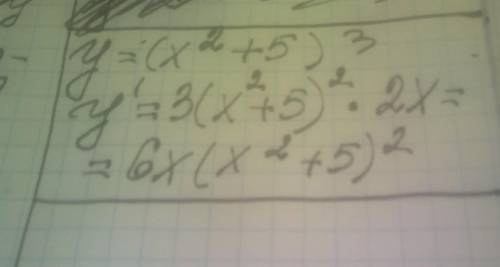 y = (x² + 5)³
y' = 3(x² + 5)² · 2x =
= 6x(x² + 5)²